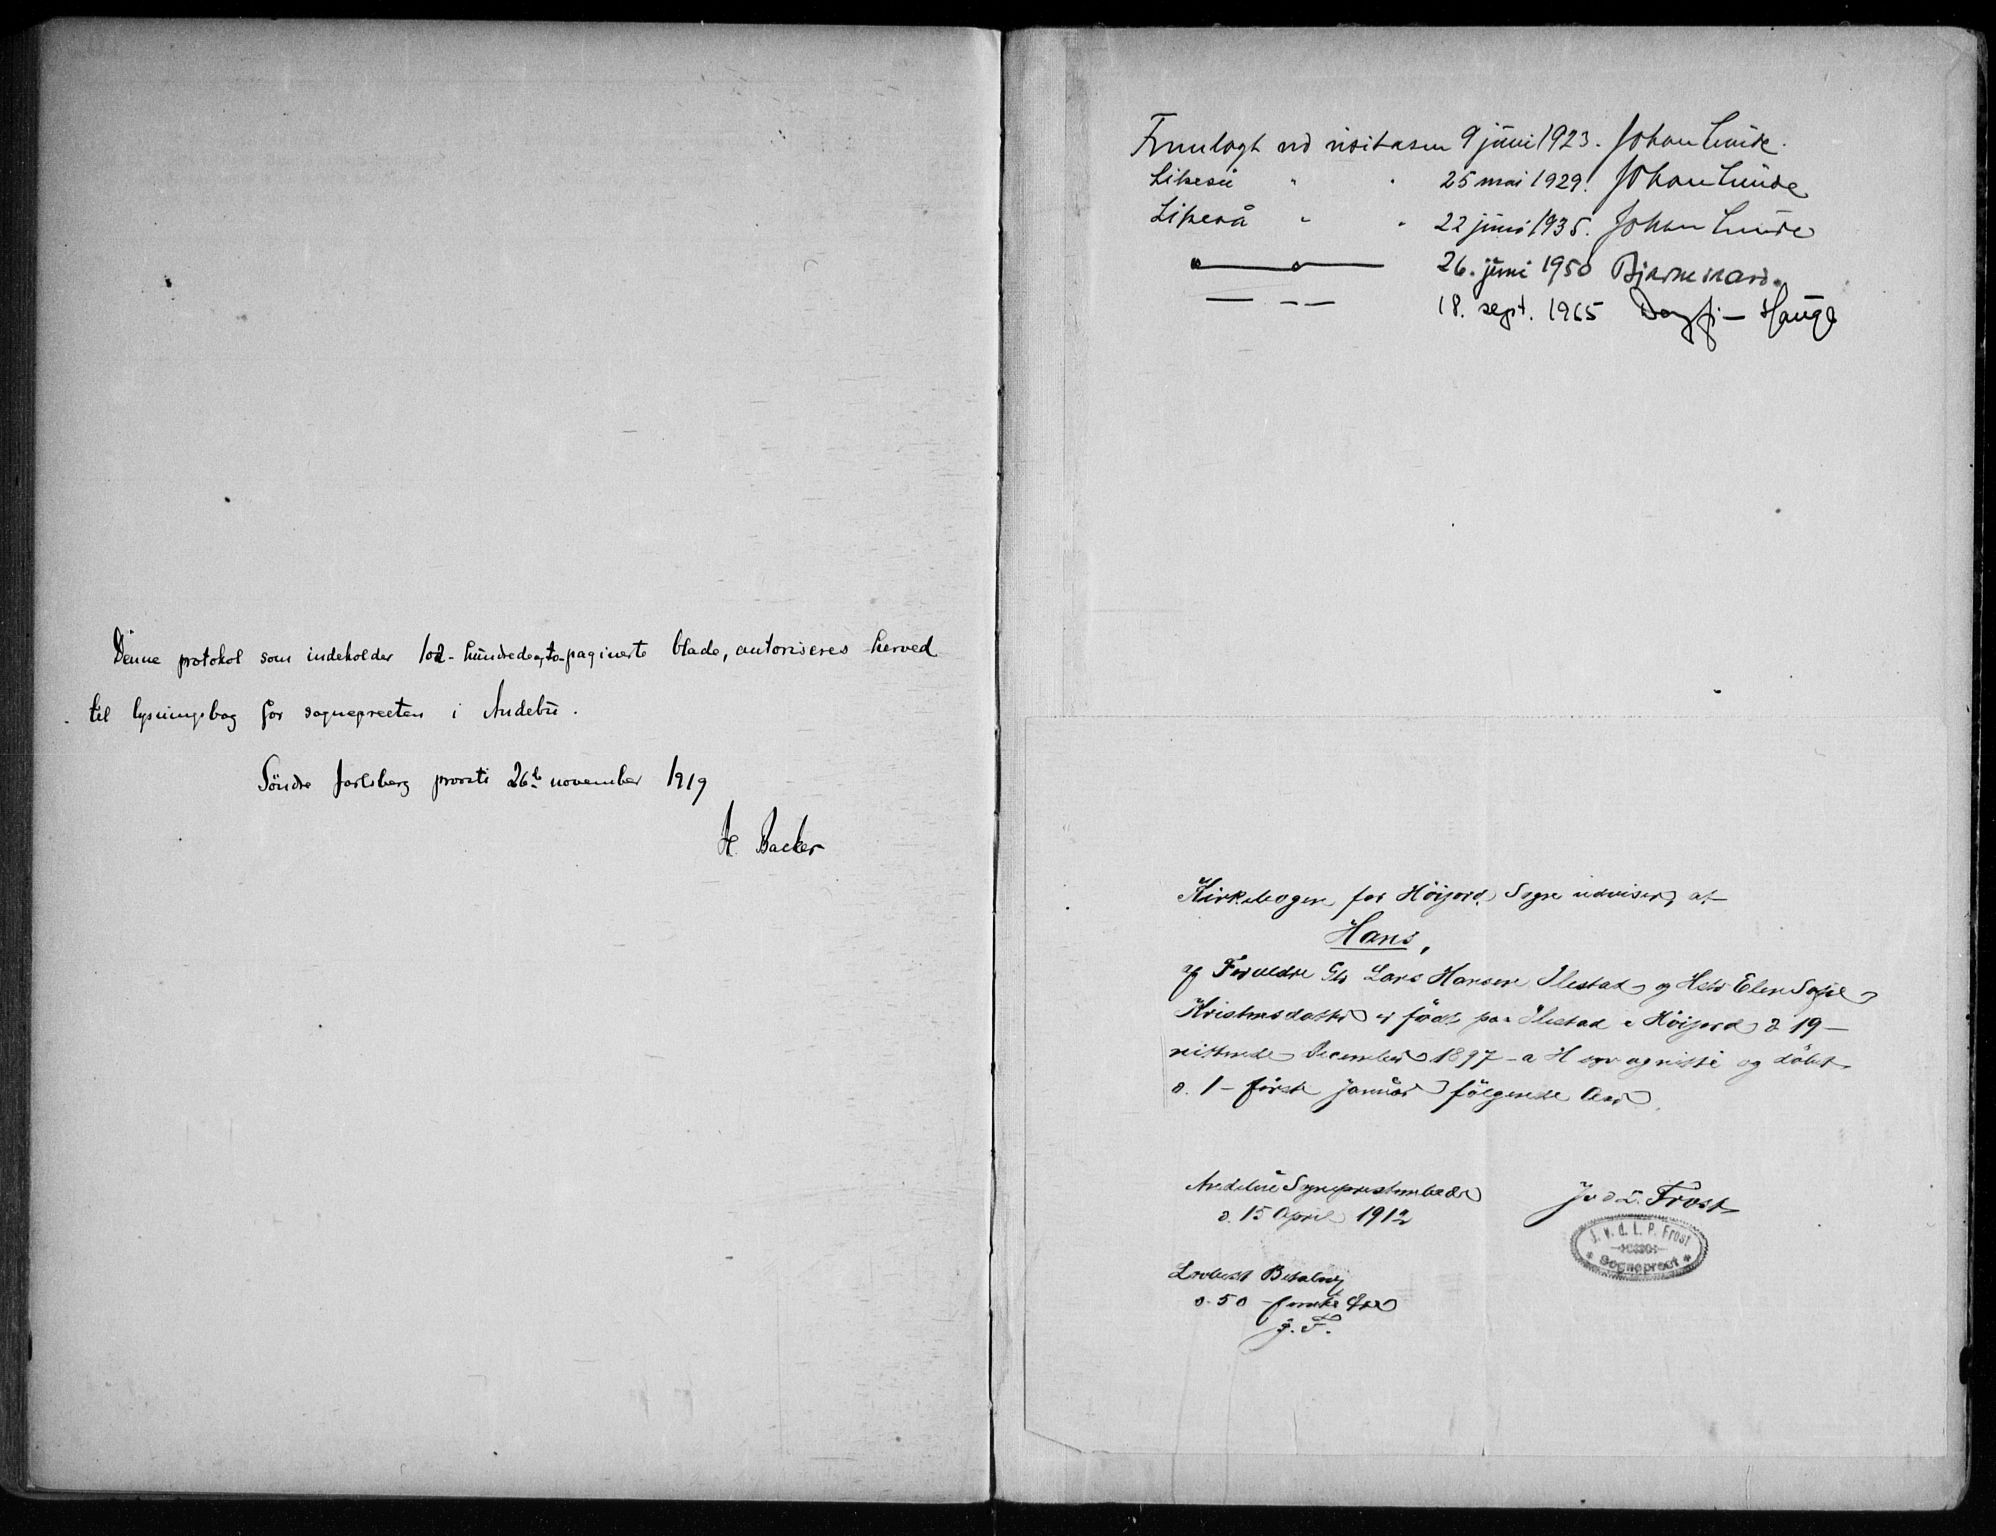 Denne protokol som indeholder 102 - hundredeogto - paginerte blade, autoriseres herved
til lysningsbog for sognepresten i Andebu.
Söndre Jarlsberg provsti 26de november 1919
H. Backer
Fremlagt ved visitasen 9 juni 1923. Johan Lunde.
Likeså " " 25 mai 1929. Johan Lunde
Likeså " " 22 juni 1935. Johan Lunde
26. juni 1950 Bjarne Skard.
18. sept. 1965 Dagfinn Hauge
Kirkebogen for Höijord Sogn udviser, at
Hans,
af Forældre Lars Hansen Ilestad og Elen Sofie
Kristensdatter er född paa Ilestad i Höijord d 19 -
nittende December 1897 - og döbt
d. 1 - förste Januar følgende Aar.
Andebu Sogneprestembede
d. 15 April 1912
J v d L. Frost
J. v. d. L. P. Frost
Sogneprest
Lovbest Betaling
0.50 - femti Øre
J. F.